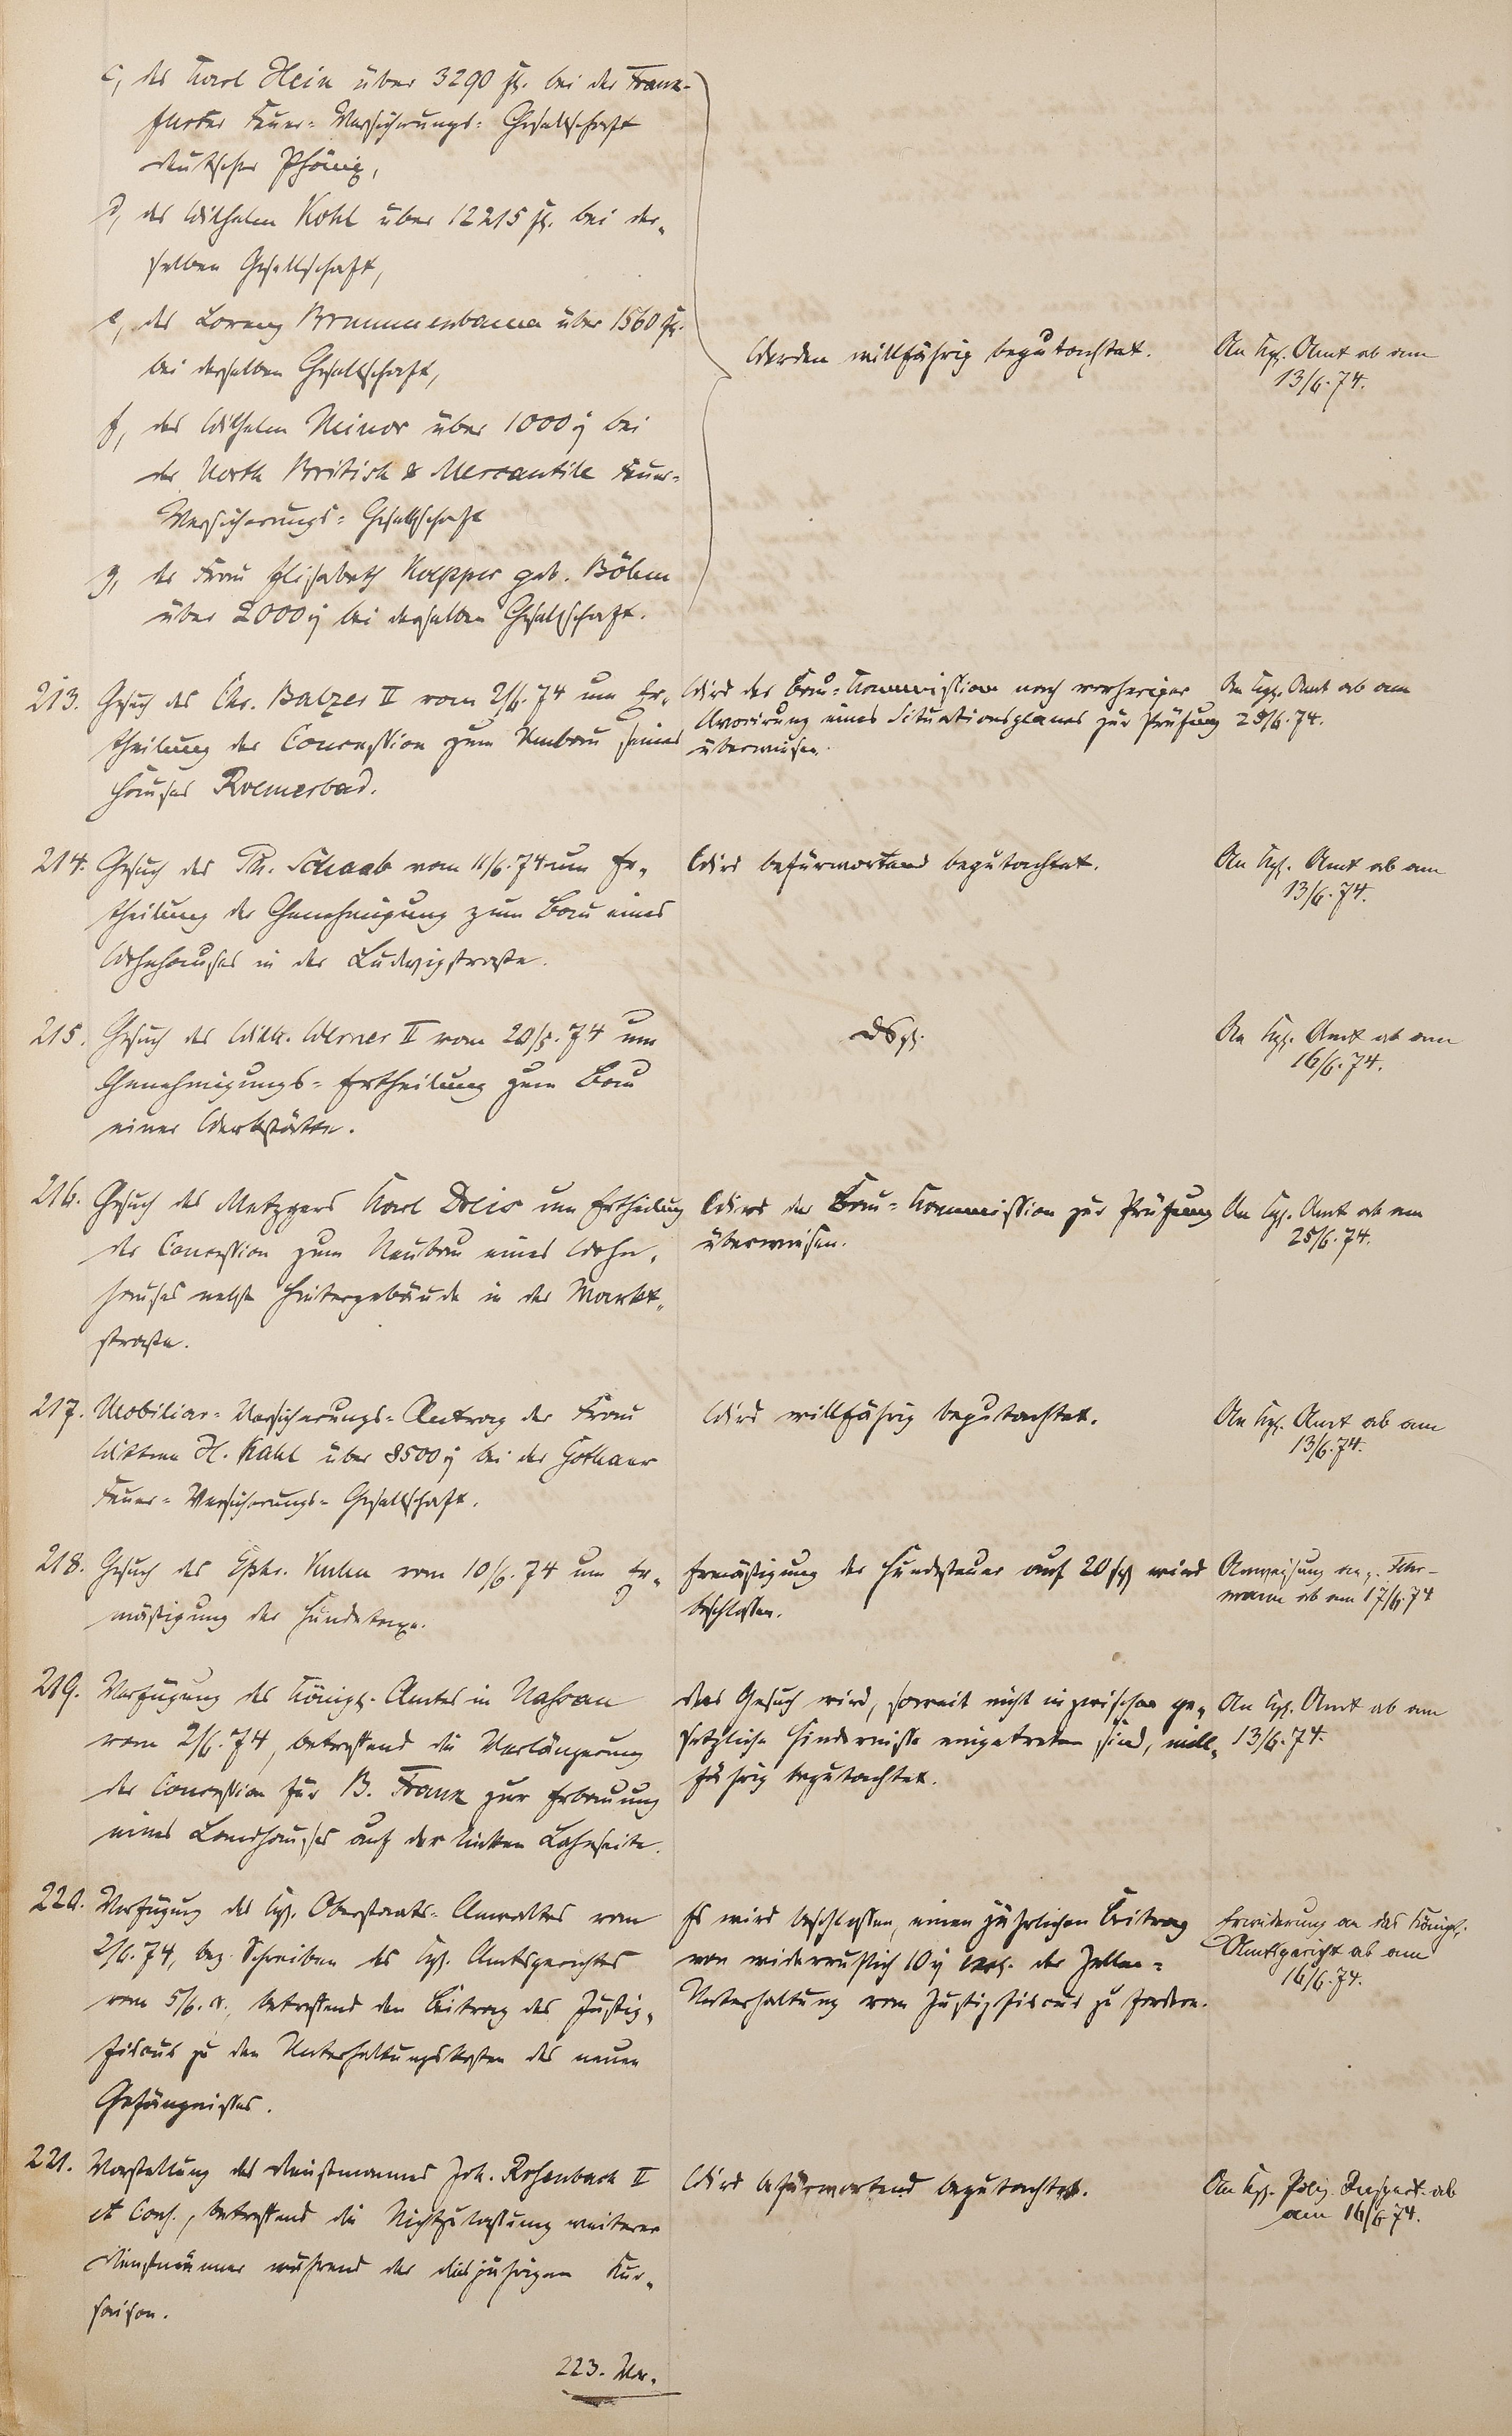 c, des Karl Hein über 3290 fl. bei der Frank-
furter Feuer-Versicherungs-Gesellschaft
deutscher Phönix,
d, des Wilhelm Kohl über 12215 fl. bei der-
selben Gesellschaft,
e, des Lorenz Brummenbaum über 1560 fl.
bei derselben Gesellschaft,
f, des Wilhelm Minor über 1000 bei
der North British & Mercantile Feuer-
Versicherungs-Gesellschaft
g, der Frau Elisabeth geb. Böhm
über 2000 bei derselben Gesellschaft.
Werden willfährig begutachtet.
An Kgl. Amt ab am
13/6.74.
213. Gesuch des Chr. Balzer II vom 2/6.74 um Er-
theilung der Concession zum Umbau seines
Hauses Roemerbad.
Wird der Bau-Kommission nach vorheriger
eines Situationsplanes zur Prüfung
überwiesen.
An Kgl. Amt ab am
25/6.74.
214. Gesuch des Ph. Schaab vom 11/6.74 um Er-
theilung der Genehmigung zum Bau eines
Wohnhauses in der Ludwigstraße.
Wird befürwortend begutachtet.
An Kgl. Amt ab am
13/6.74.
215. Gesuch des Wilh. Werner II vom 20/5.74 um
Genehmigungs-Ertheilung zum Bau
einer Werkstätte.
dsgl.
An Kgl. Amt ab am
16/6.74.
216. Gesuch des Metzgers Karl um Ertheilung
der Concession zum Neubau eines Wohn-
hauses nebst Hintergebäude in der Markt-
straße.
Wird der Bau-Kommission zur Prüfung
überwiesen.
An Kgl. Amt ab am
25/6.74.
217. Mobiliar-Versicherungs-Antrag der Frau
Wittwe H. Kahl über 8500 bei der Gothaer
Feuer-Versicherungs-Gesellschaft.
Wird willfährig begutachtet.
An Kgl. Amt ab am
13/6.74.
218. Gesuch des Ephr. Kuhn vom 10/6.74 um Er-
mäßigung der Hundetaxe.
Ermäßigung der Hundesteuer auf 20 sgr wird
beschlossen.
Anweisung an
ab am 17/6.74
219. Verfügung des Königl. Amtes in Nassau
vom 2/6.74, betreffend die Verlängerung
der Concession für B. Frank zur Erbauung
eines Landhauses auf der linken Lahnseite.
Das Gesuch wird, soweit nicht inzwischen ge-
setzliche Hindernisse eingetreten sind, will-
fährig begutachtet.
An Kgl. Amt ab am
13/6.74.
220. Verfügung des Kgl. Oberstaats-Anwaltes vom
2/6.74, bez. Schreiben des Kgl. Amtsgerichtes
vom 5/6. betreffend den Beitrag des Justiz-
fiscus zu den Unterhaltungskosten des neuen
Gefängnisses.
Es wird beschlossen, einen jährlichen Beitrag
von widerruflich 10 der Zellen-
Unterhaltung vom Justizfiscus zu fordern.
Erwiderung an das Königl.
Amtsgericht ab am
16/6.74.
221. Vorstellung des Dienstmannes Joh. Rosenbach II
et Cons., betreffend die Nichtzulassung weiterer
Dienstmänner während der diesjährigen Kur-
saison.
Wird befürwortend begutachtet.
An Kgl. Poliz. Inspect. ab
am 16/6 74.
223. Ver-